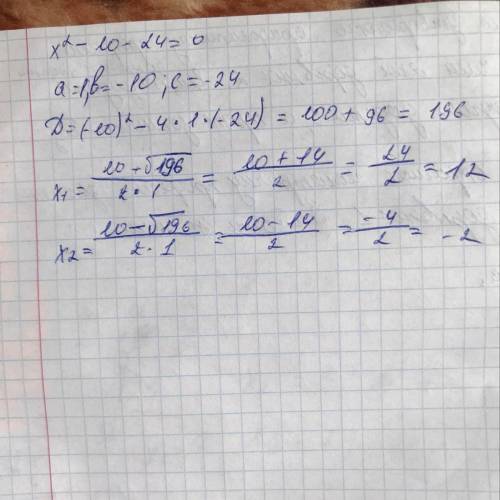 x² - 10 - 24 = 0
a = 1, b = -10; c = -24
D = (-10)² - 4 * 1 * (-24) = 100 + 96 = 196
x₁ = (10 + √196)/(2 * 1) = (10 + 14)/2 = 24/2 = 12
x₂ = (10 - √196)/(2 * 1) = (10 - 14)/2 = -4/2 = -2